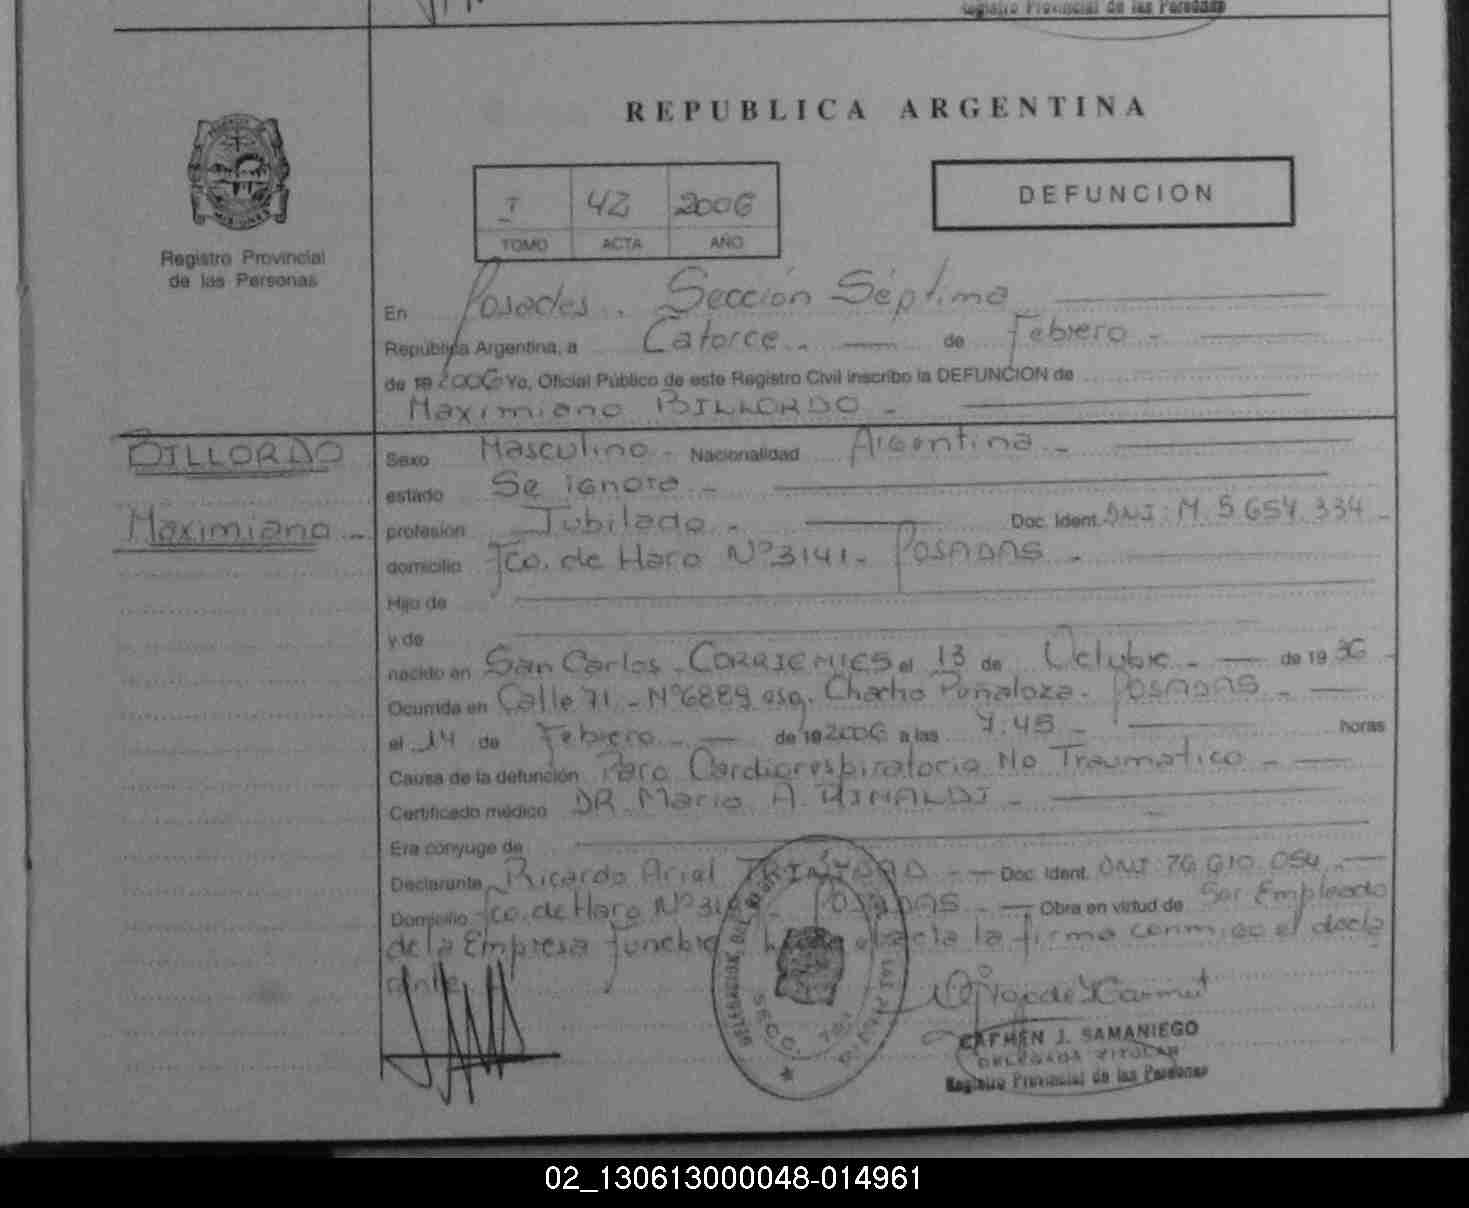 Registro Provincial de las Personas
REPUBLICA ARGENTINA
I 42 2006
TOMO ACTA AÑO
DEFUNCION
MISIONES
Registro Provincial
de las Personas
En Posadas. Sección Séptima
República Argentina, a Catorce.. de Febrero -
de 19 2006 Yo, Oficial Público de este Registro Civil inscribo la DEFUNCION de
Maximiano BILLORDO -
BILLORDO
Maximiano -
Sexo Masculino - Nacionalidad Argentina -
estado Se ignora -
profesion Jubilado - Doc. Ident. DNI: M 5.654.334 -
domicilio Fco. de Haro Nº 3141 - POSADAS -
Hijo de
y de
nacido en San Carlos - CORRIENTES el 13 de Octubre - de 19 36 -
Ocurrida en Calle 71 - Nº 6889 esq. Chacho Peñaloza - POSADAS -
el 14 de Febrero - de 19 2006 a las 7:45 - horas
Causa de la defunción Paro Cardiorespiratorio No Traumatico -
Certificado médico DR. Mario A. RINALDI -
Era conyuge de
Declarante Ricardo Ariel TRINIDAD - Doc. Ident. DNI: 26.610.054 -
Domicilio Fco. de Haro Nº 3141 - POSADAS - Obra en virtud de Ser Empleado
de la Empresa funebre la firma conmigo el decla
rante.
DELEGACION DEL
LAS
SECC.
CARMEN J. SAMANIEGO
DELEGADA TITULAR
Registro Provincial de las Personas
02_130613000048-014961